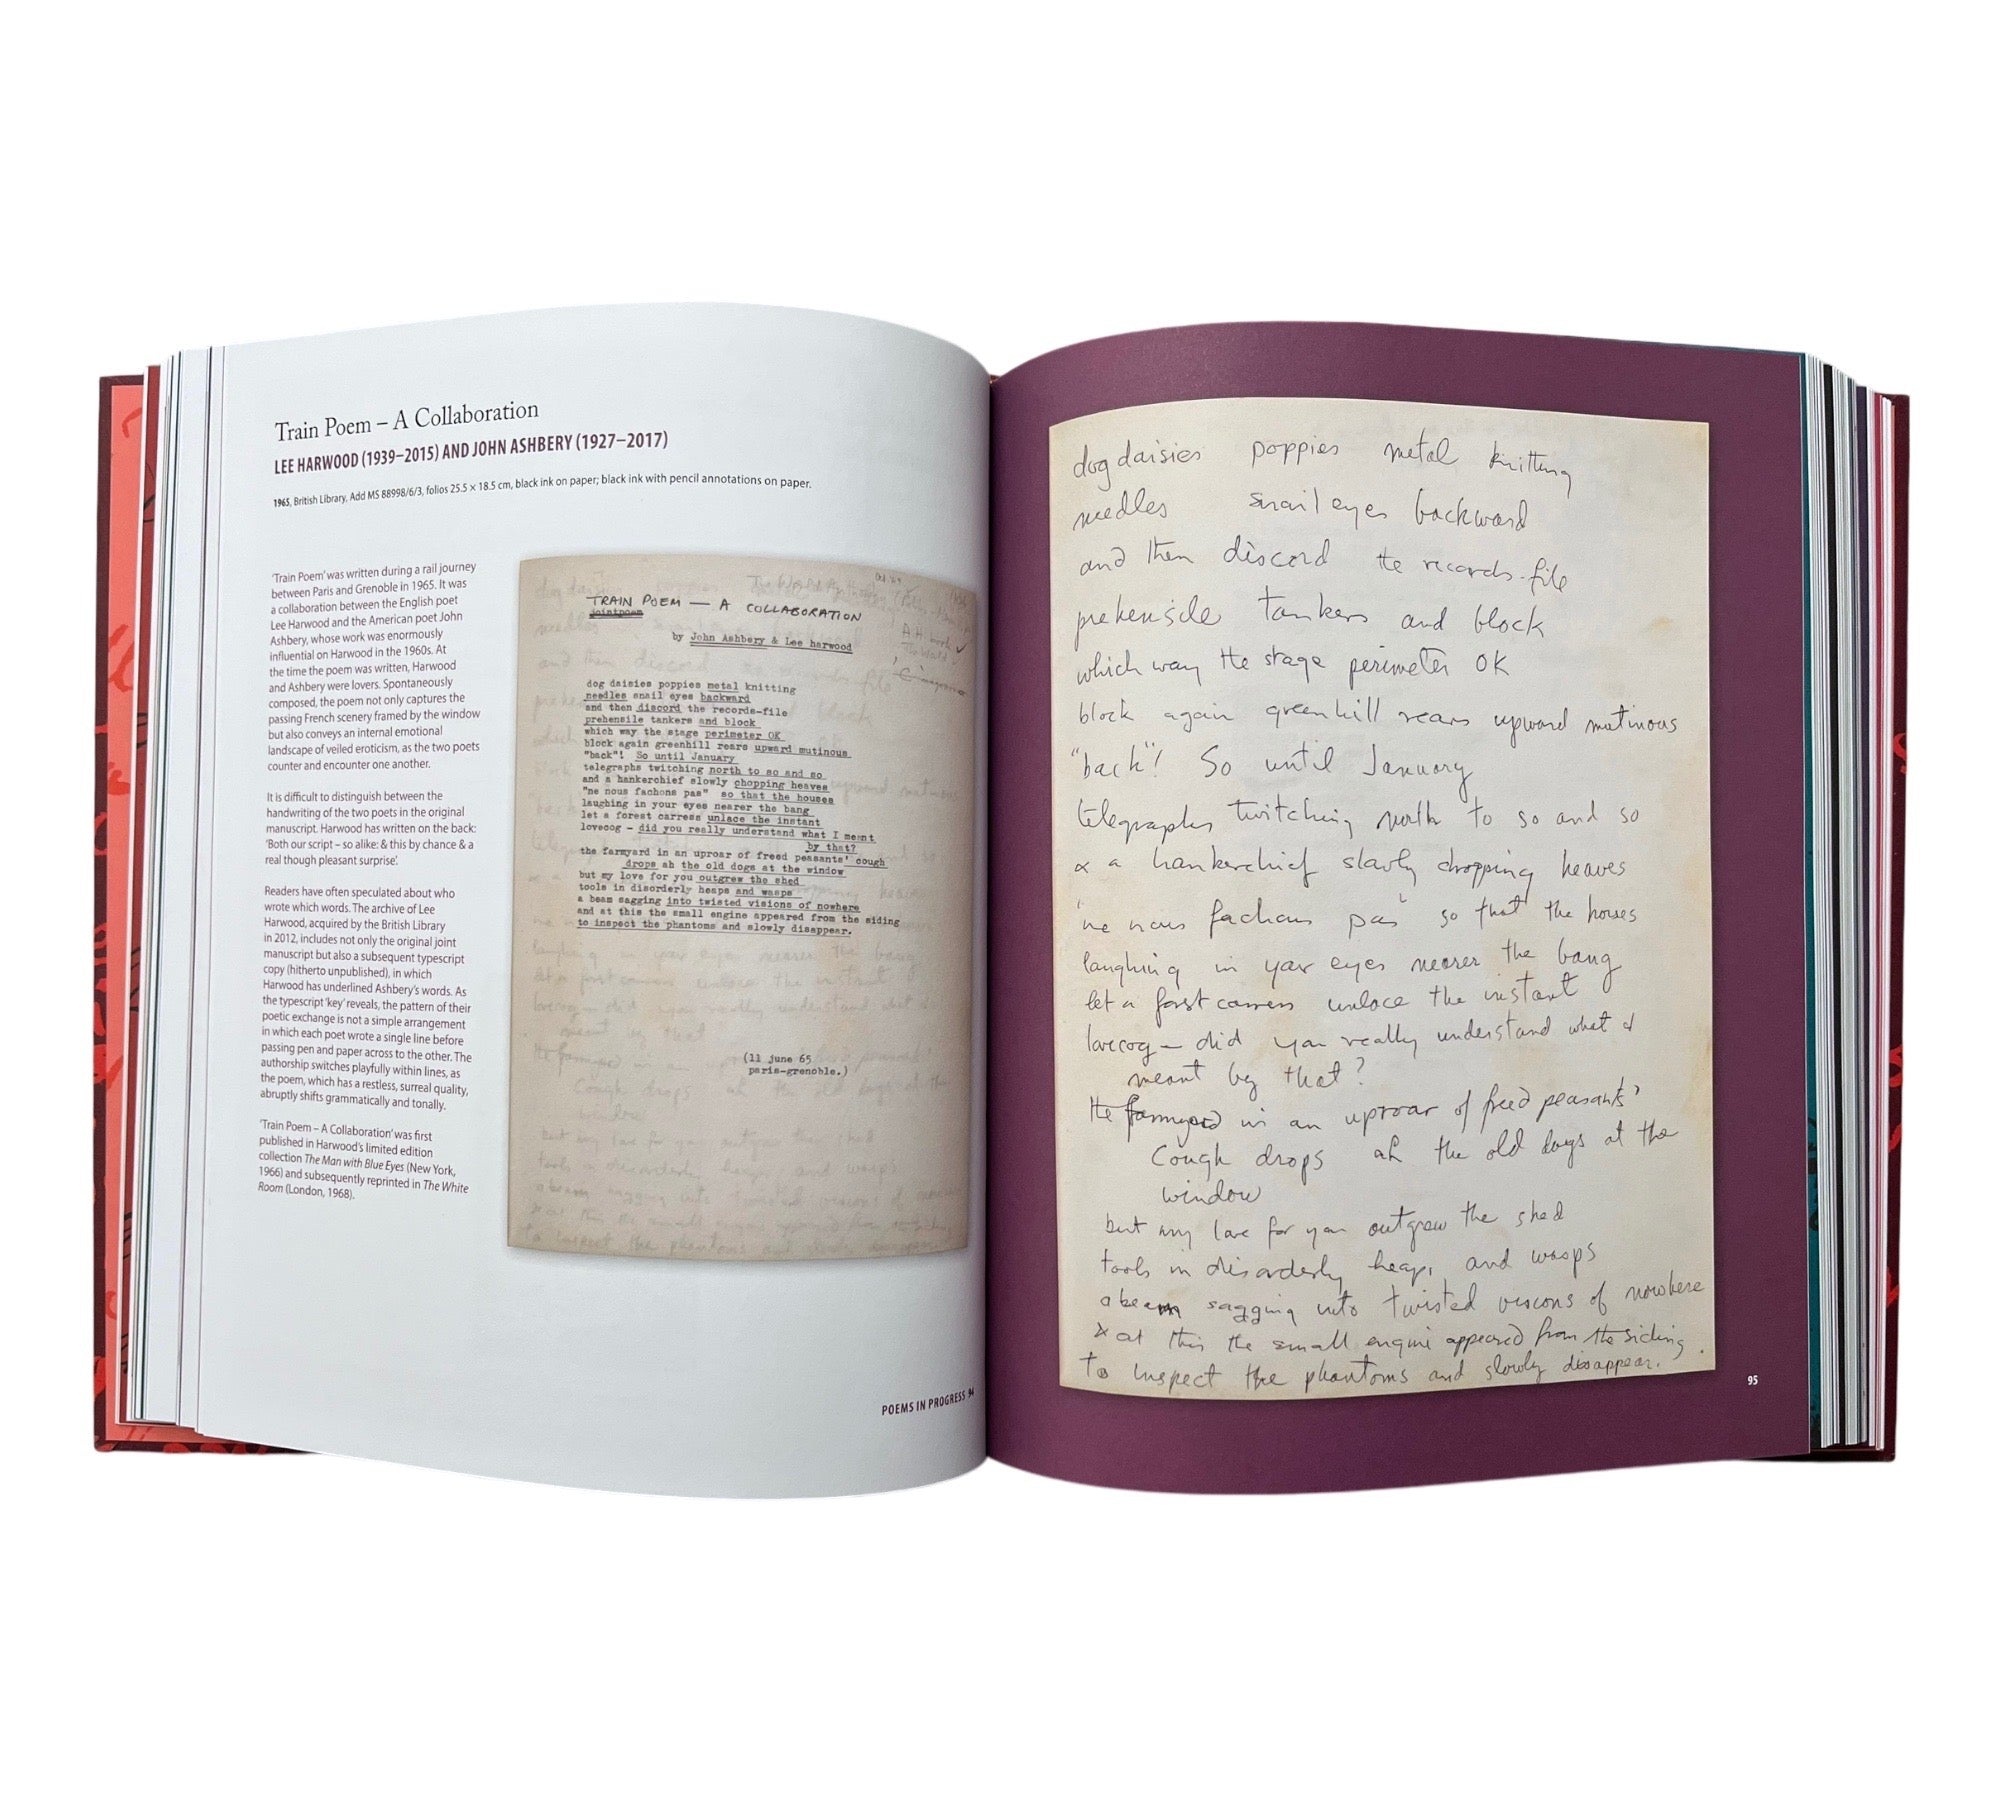 Train Poem – A Collaboration
LEE HARWOOD (1939–2015) AND JOHN ASHBERY (1927–2017)
1965, British Library, Add MS 88998/6/3, folios 25.5 × 18.5 cm, black ink on paper; black ink with pencil annotations on paper.
'Train Poem' was written during a rail journey
between Paris and Grenoble in 1965. It was
a collaboration between the English poet
Lee Harwood and the American poet John
Ashbery, whose work was enormously
influential on Harwood in the 1960s. At
the time the poem was written, Harwood
and Ashbery were lovers. Spontaneously
composed, the poem not only captures the
passing French scenery framed by the window
but also conveys an internal emotional
landscape of veiled eroticism, as the two poets
counter and encounter one another.
It is difficult to distinguish between the
handwriting of the two poets in the original
manuscript. Harwood has written on the back:
'Both our script – so alike: & this by chance & a
real though pleasant surprise'.
Readers have often speculated about who
wrote which words. The archive of Lee
Harwood, acquired by the British Library
in 2012, includes not only the original joint
manuscript but also a subsequent typescript
copy (hitherto unpublished), in which
Harwood has underlined Ashbery's words. As
the typescript 'key' reveals, the pattern of their
poetic exchange is not a simple arrangement
in which each poet wrote a single line before
passing pen and paper across to the other. The
authorship switches playfully within lines, as
the poem, which has a restless, surreal quality,
abruptly shifts grammatically and tonally.
'Train Poem – A Collaboration' was first
published in Harwood's limited edition
collection The Man with Blue Eyes (New York,
1966) and subsequently reprinted in The White
Room (London, 1968).
TRAIN POEM — A COLLABORATION
jointpoem
by John Ashbery & Lee harwood
dog daisies poppies metal knitting
needles snail eyes backward
and then discord the records-file
prehensile tankers and block
which way the stage perimeter OK
block again greenhill rears upward mutinous
"back"! So until January
telegraphs twitching north to so and so
and a hankerchief slowly chopping heaves
"ne nous fachons pas" so that the houses
laughing in your eyes nearer the bang
let a forest carress unlace the instant
lovecog – did you really understand what I meant
by that?
the farmyard in an uproar of freed peasants' cough
drops ah the old dogs at the window
but my love for you outgrew the shed
tools in disorderly heaps and wasps
a beam sagging into twisted visions of nowhere
and at this the small engine appeared from the siding
to inspect the phantoms and slowly disappear.
(11 june 65
paris-grenoble.)
POEMS IN PROGRESS 94
dog daisies poppies metal knitting
needles snail eyes backward
and then discord the records-file
prehensile tankers and block
which way the stage perimeter OK
block again greenhill rears upward mutinous
"back"! So until January
telegraphs twitching north to so and so
& a hankerchief slowly dropping heaves
'ne nous fachons pas' so that the houses
laughing in your eyes nearer the bang
let a forest carress unlace the instant
lovecog – did you really understand what I
meant by that?
the farmyard in an uproar of freed peasants'
Cough drops ah the old dogs at the
window
but my love for you outgrew the shed
tools in disorderly heaps, and wasps
a beam sagging into twisted visions of nowhere
& at this the small engine appeared from the siding.
to inspect the phantoms and slowly disappear.
95